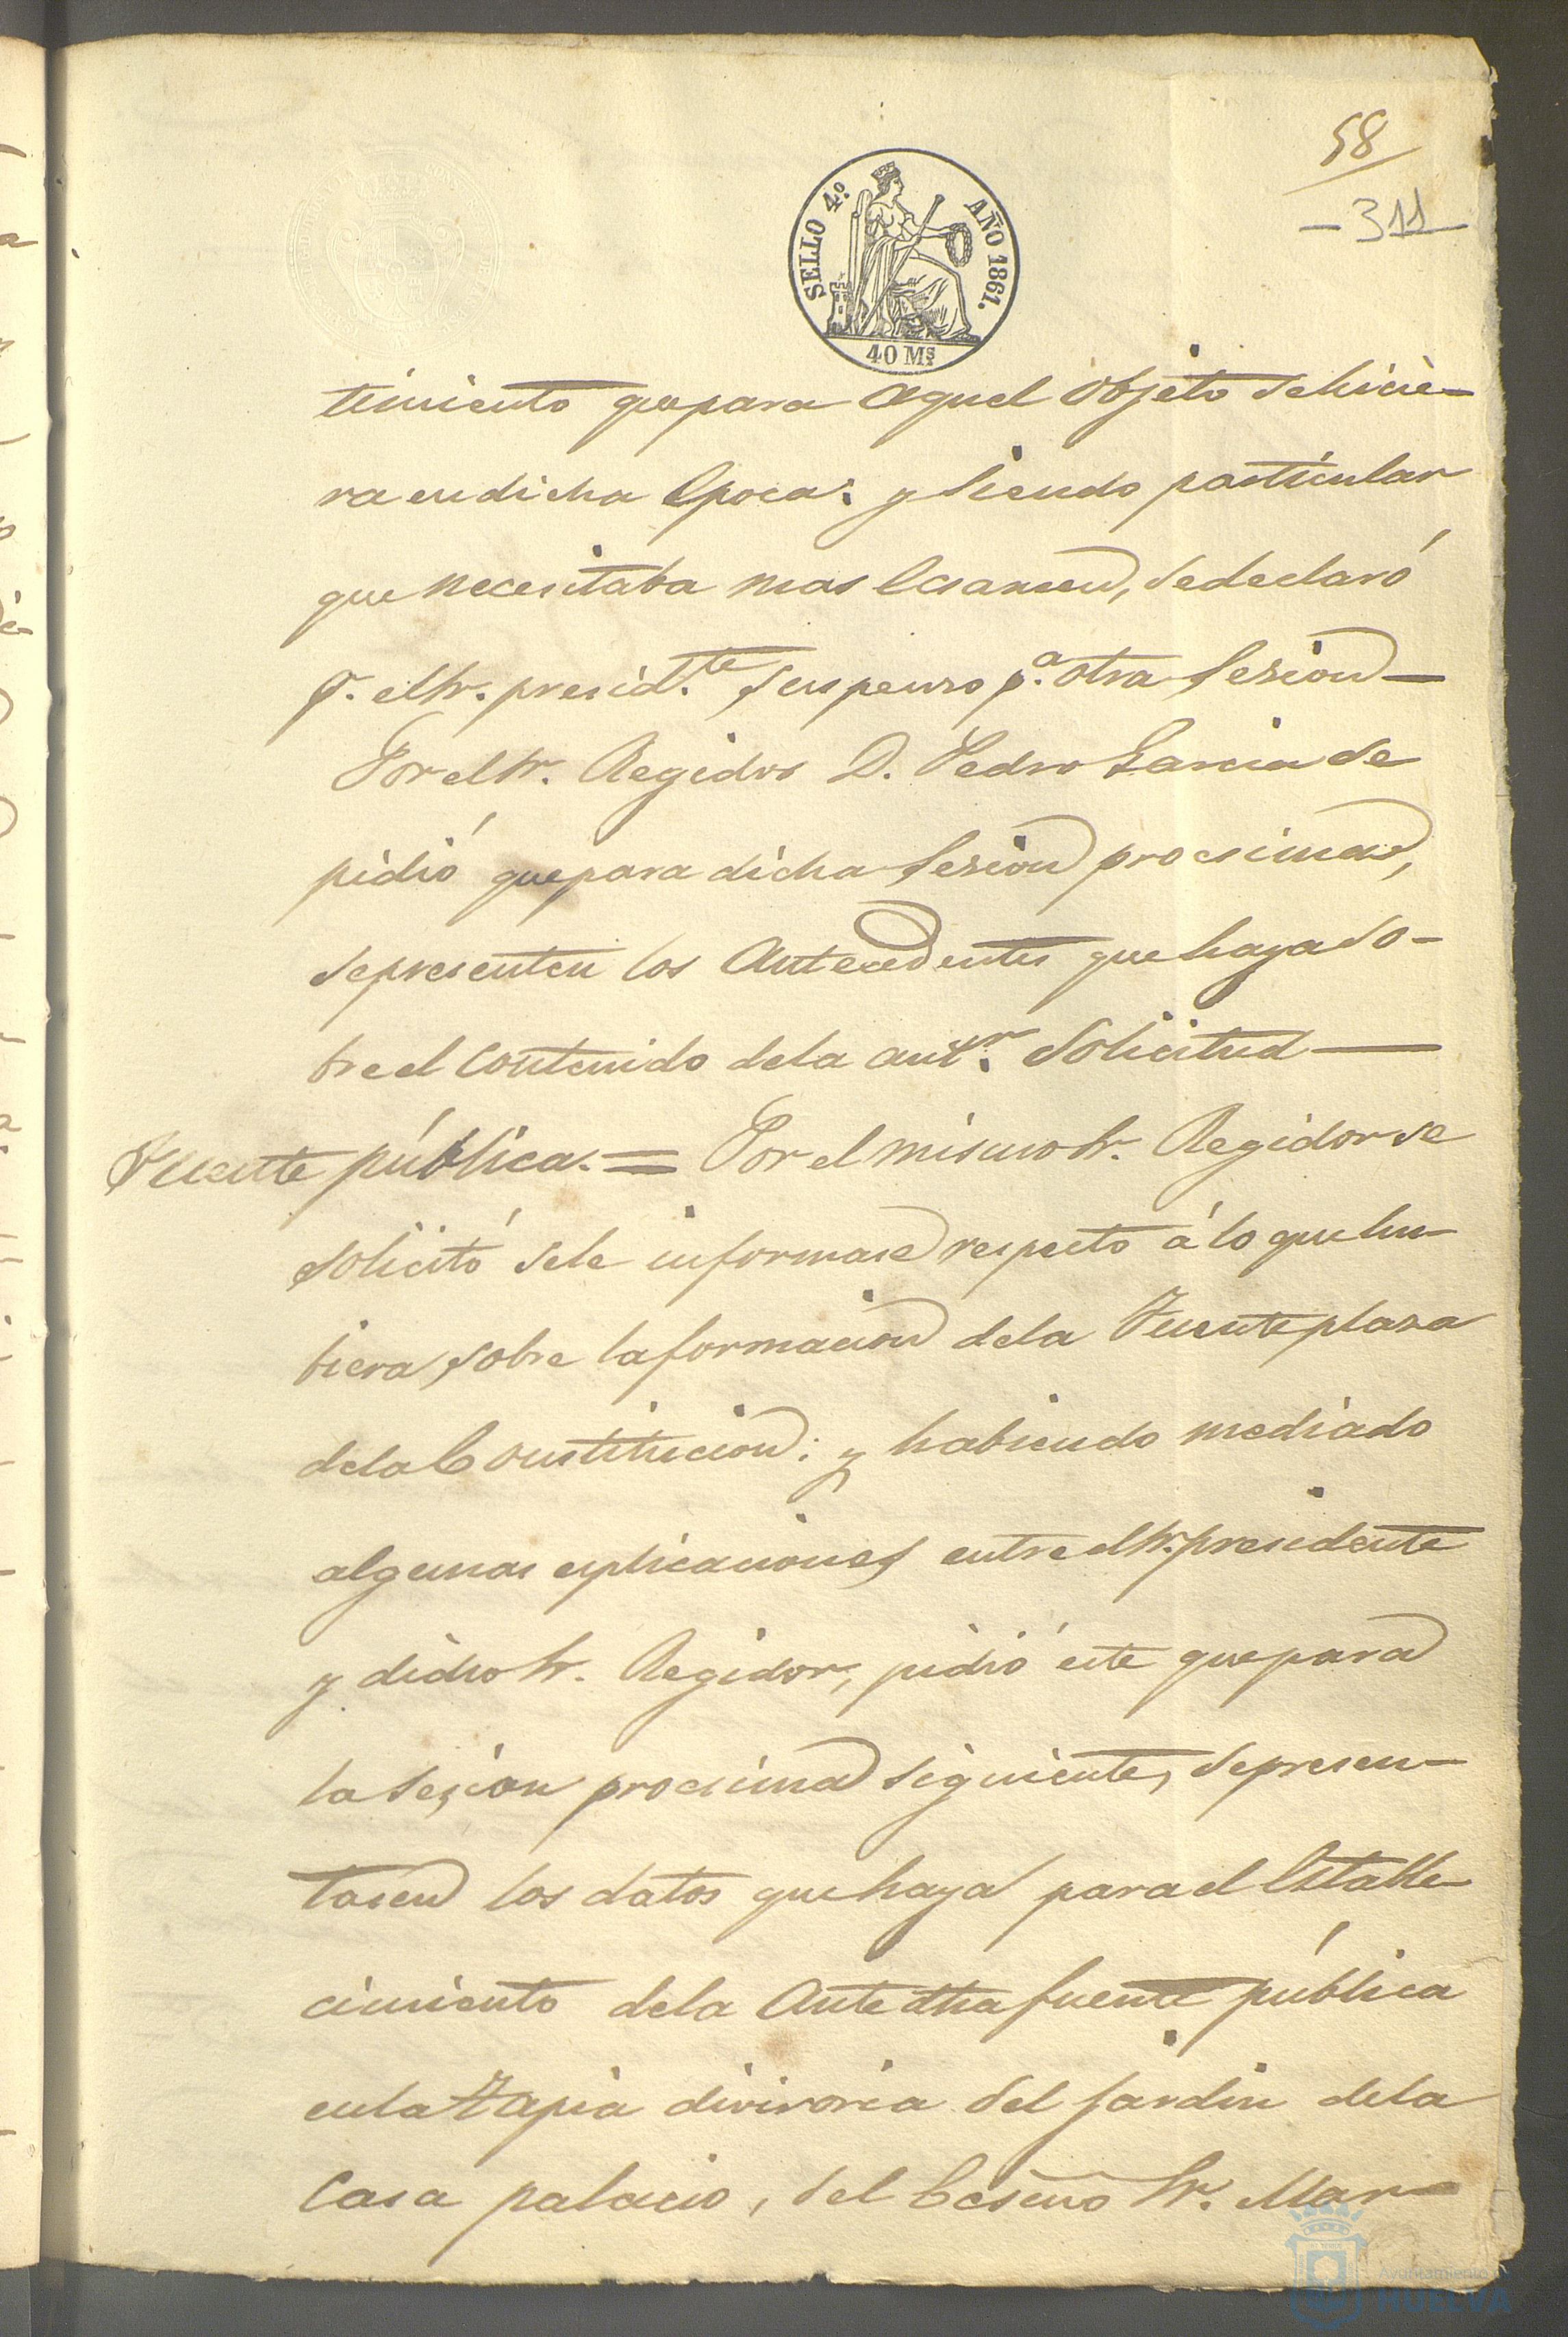 58
-311-
SELLO 4º. AÑO 1861.
40 Ms.
timiento que para aquel objeto se hicie-
ra en dicha Epoca: y siendo particular
que necesitaba mas Ecsamen, se declaró
p. el Sr. presid.te suspenso p.a otra Sesion—
Por el Sr. Regidor D. Pedro Garcia se
pidió que para dicha Sesion procsima,
se presenten los Antecedentes que haya so-
bre el Contenido de la antr. Solicitud—
Fuente pública.= Por el mismo Sr. Regidor se
solicitó se le informase respecto á lo que hu-
biera, sobre la formacion de la Fuente plaza
de la Constitucion: y habiendo mediado
algunas esplicaciones entre el Sr. presidente
y dicho Sr. Regidor, pidió este que para
la Sesion procsima siguiente, se presen-
tasen los datos que haya para el Estable-
cimiento de la Antedha fuente pública
en la Tapia divisoria del jardin de la
Casa palacio, del Ecsmo Sr. Mar-
Ayuntamiento
HUELVA